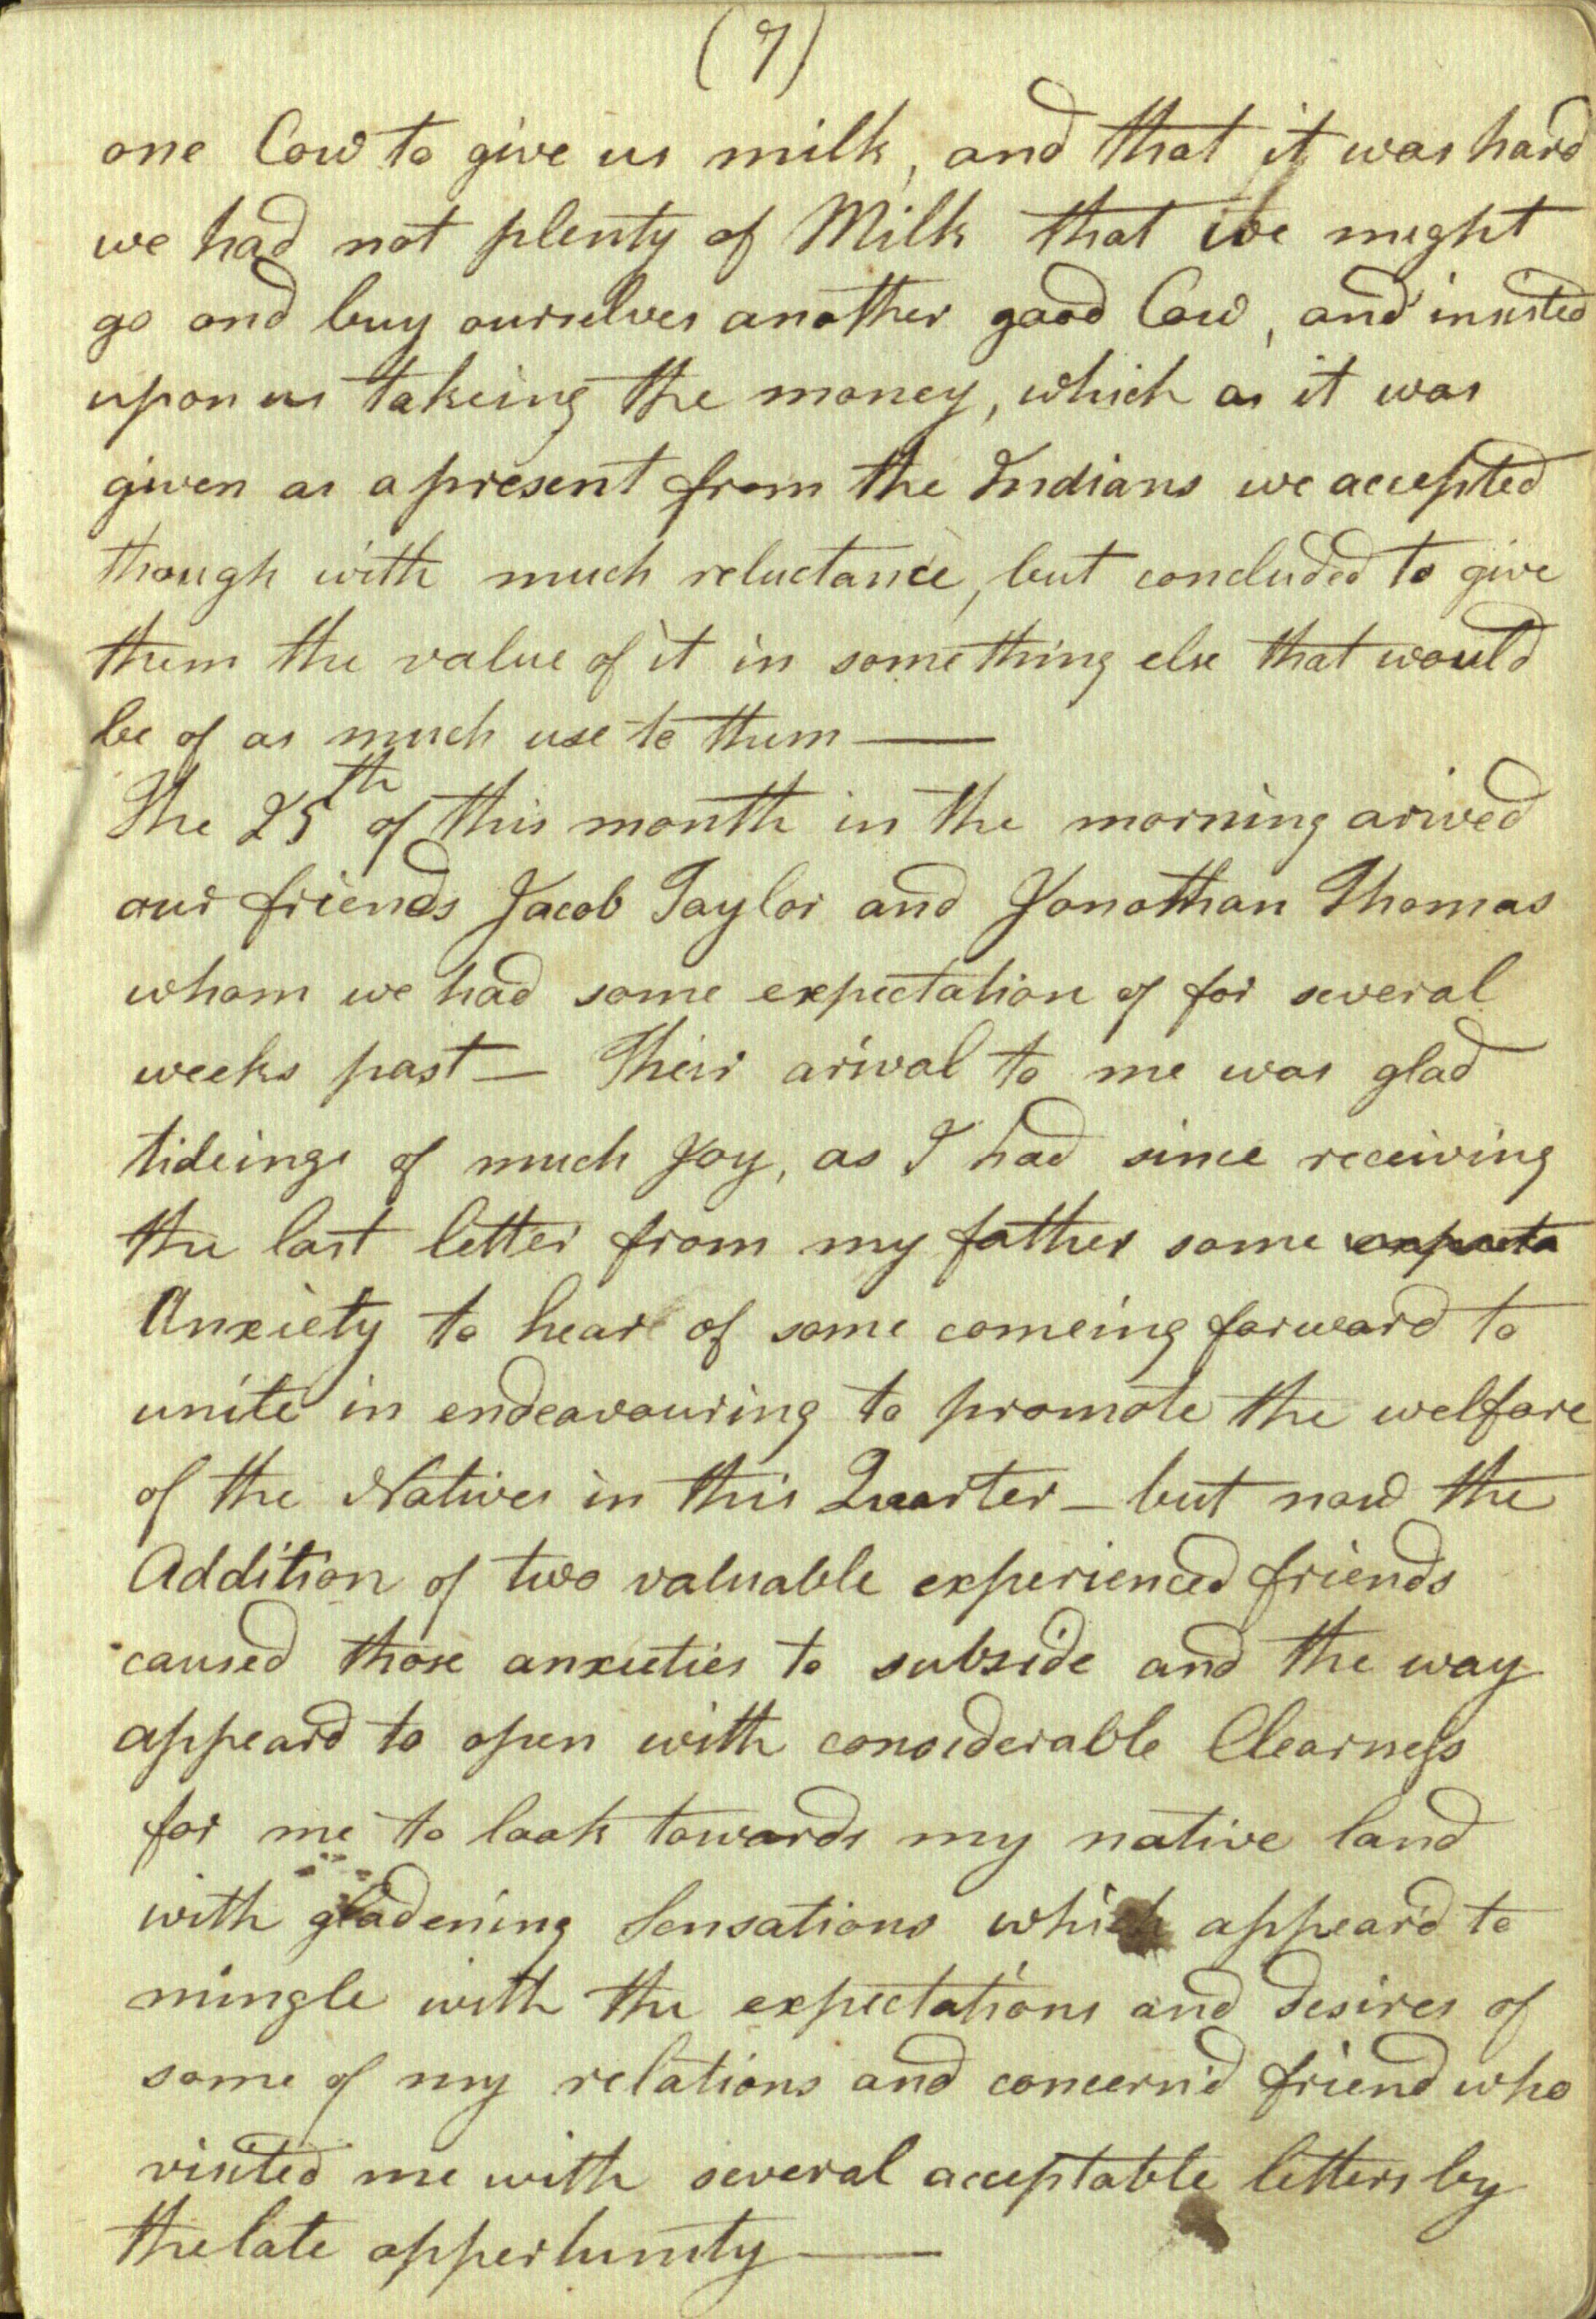 (7)
one Cow to give us milk, and that it was hard
we had not plenty of Milk that we might
go and buy ourselves another good Cow, and insisted
upon us takeing the money, which as it was
given as a present from the Indians we accepted
though with much reluctance, but concluded to give
them the value of it in something else that would
be of as much use to them —
The 25th of this month in the morning arived
our friends Jacob Taylor and Jonathan Thomas
whom we had some expectation of for several
weeks past — Their arival to me was glad
tideings of much Joy, as I had since receiving
the last letter from my father some expecta
Anxiety to hear of some comeing forward to
unite in endeavouring to promote the welfare
of the Natives in this Quarter — but now the
Addition of two valuable experienced friends
caused those anxieties to subside and the way
appeard to open with considerable Clearness
for me to look towards my native land
with gladening Sensations which appear'd to
mingle with the expectations and desires of
some of my relations and concern'd friend who
visited me with several acceptable letters by
the late oppertunity —